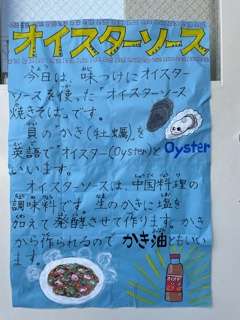 オイスターソース
今日は、味つけにオイスター
ソースを使った"オイスターソース
焼きそば"です。
貝のかき(牡蠣)を
英語で"オイスター(Oyster)と
Oyster
いいます。
オイスターソースは、中国料理の
調味料です。生のかきに塩を
加えて発酵させて作ります。かき
から作られるので かき油ともいい
ます。